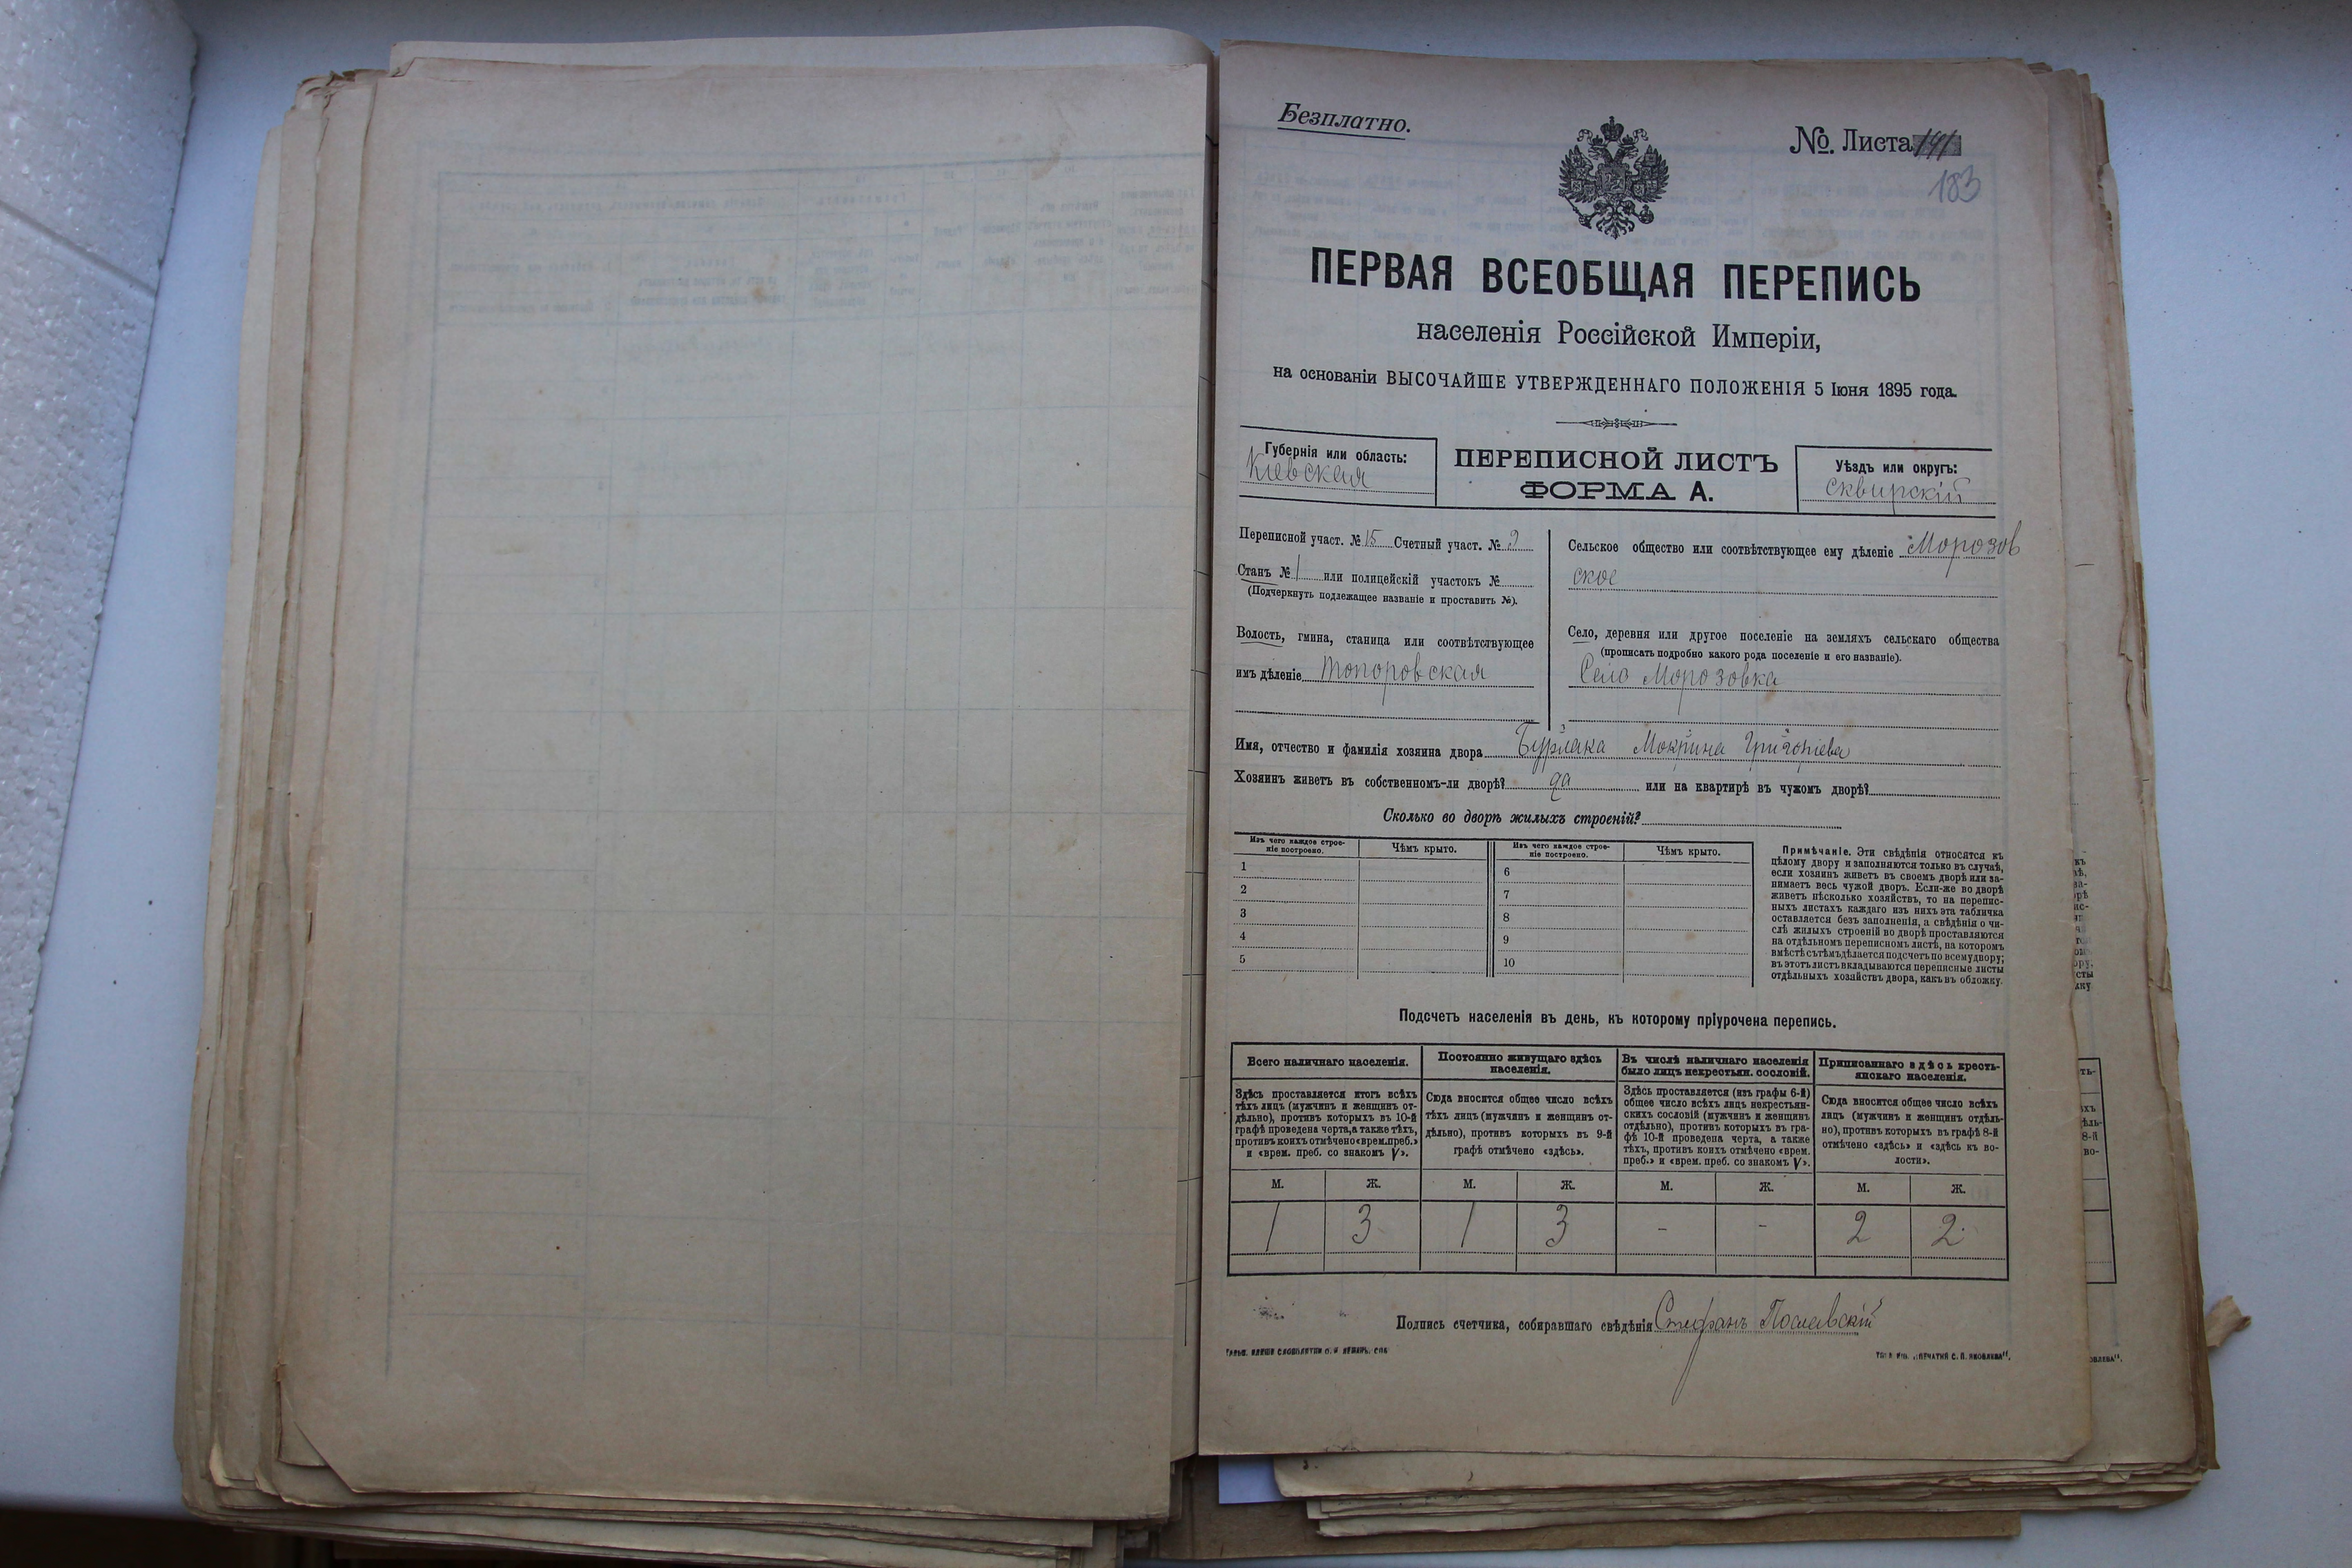 Безплатно.
№. Листа 141
183
ПЕРВАЯ ВСЕОБЩАЯ ПЕРЕПИСЬ
населенія Россійской Имперіи,
на основаніи ВЫСОЧАЙШЕ УТВЕРЖДЕННАГО ПОЛОЖЕНІЯ 5 Іюня 1895 года.
Губернія или область:
Кіевская
ПЕРЕПИСНОЙ ЛИСТЪ
ФОРМА А.
Уѣздъ или округъ:
Сквирскій
Переписной участ. № 15 Счетный участ. № 9
Станъ № 1 или полицейскій участокъ №
(Подчеркнуть подлежащее названіе и проставить №).
Волость, гмина, станица или соотвѣтствующее
имъ дѣленіе Топоровская
Сельское общество или соотвѣтствующее ему дѣленіе Морозов
ское
Село, деревня или другое поселеніе на земляхъ сельскаго общества
(прописать подробно какого рода поселеніе и его названіе).
Село Морозовка
Имя, отчество и фамилія хозяина двора Бурлака Мокрина Григоріева
Хозяинъ живетъ въ собственномъ-ли дворѣ? да или на квартирѣ въ чужомъ дворѣ?
Сколько во дворѣ жилыхъ строеній?
Изъ чего каждое строе-
ніе построено.
Чѣмъ крыто.
Изъ чего каждое строе-
ніе построено.
Чѣмъ крыто.
1
2
3
4
5
6
7
8
9
10
Примѣчаніе. Эти свѣдѣнія относятся къ
цѣлому двору и заполняются только въ случаѣ,
если хозяинъ живетъ въ своемъ дворѣ или за-
нимаетъ весь чужой дворъ. Если-же во дворѣ
живетъ нѣсколько хозяйствъ, то на перепис-
ныхъ листахъ каждаго изъ нихъ эта табличка
оставляется безъ заполненія, а свѣдѣнія о чи-
слѣ жилыхъ строеній во дворѣ проставляются
на отдѣльномъ переписномъ листѣ, на которомъ
вмѣстѣ съ тѣмъ дѣлается подсчетъ по всему двору;
въ этотъ листъ вкладываются переписные листы
отдѣльныхъ хозяйствъ двора, какъ въ обложку.
Подсчетъ населенія въ день, къ которому пріурочена перепись.
Всего наличнаго населенія.
Здѣсь проставляется итогъ всѣхъ
тѣхъ лицъ (мужчинъ и женщинъ от-
дѣльно), противъ которыхъ въ 10-й
графѣ проведена черта, а также тѣхъ,
противъ коихъ отмѣчено «врем. преб.»
и «врем. преб. со знакомъ V».
Постоянно живущаго здѣсь
населенія.
Сюда вносится общее число всѣхъ
тѣхъ лицъ (мужчинъ и женщинъ от-
дѣльно), противъ которыхъ въ 9-й
графѣ отмѣчено «здѣсь».
Въ числѣ наличнаго населенія
было лицъ некрестьян. сословій.
Здѣсь проставляется (изъ графы 6-й)
общее число всѣхъ лицъ некрестьян-
скихъ сословій (мужчинъ и женщинъ
отдѣльно), противъ которыхъ въ гра-
фѣ 10-й проведена черта, а также
тѣхъ, противъ коихъ отмѣчено «врем.
преб.» и «врем. преб. со знакомъ V».
Приписаннаго здѣсь кресть-
янскаго населенія.
Сюда вносится общее число всѣхъ
лицъ (мужчинъ и женщинъ отдѣль-
но), противъ которыхъ въ графѣ 8-й
отмѣчено «здѣсь» и «здѣсь къ во-
лости».
М. Ж. М. Ж. М. Ж. М. Ж.
1 3 1 3 - - 2 2
Подпись счетчика, собиравшаго свѣдѣнія Стефанъ